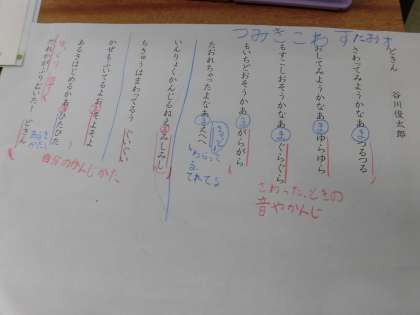 つみきこわす たおす
どきん
谷川俊太郎
さわってみようかなあ つるつる
おしてみようかなあ ゆらゆら
もすこしおそうかなあ ぐらぐら
さわったときの
音やかんじ
もいちどおそうかあ がらがら
たおれちゃったよなあ えへへ
わらって
いんりょくかんじるねえ みしみし
ちきゅうはまわってるう ぐいぐい
かぜもふいてるよお そよそよ
自分のかんじかた
あるきはじめるかあ ひたひた
だれかがふりむいた! どきん